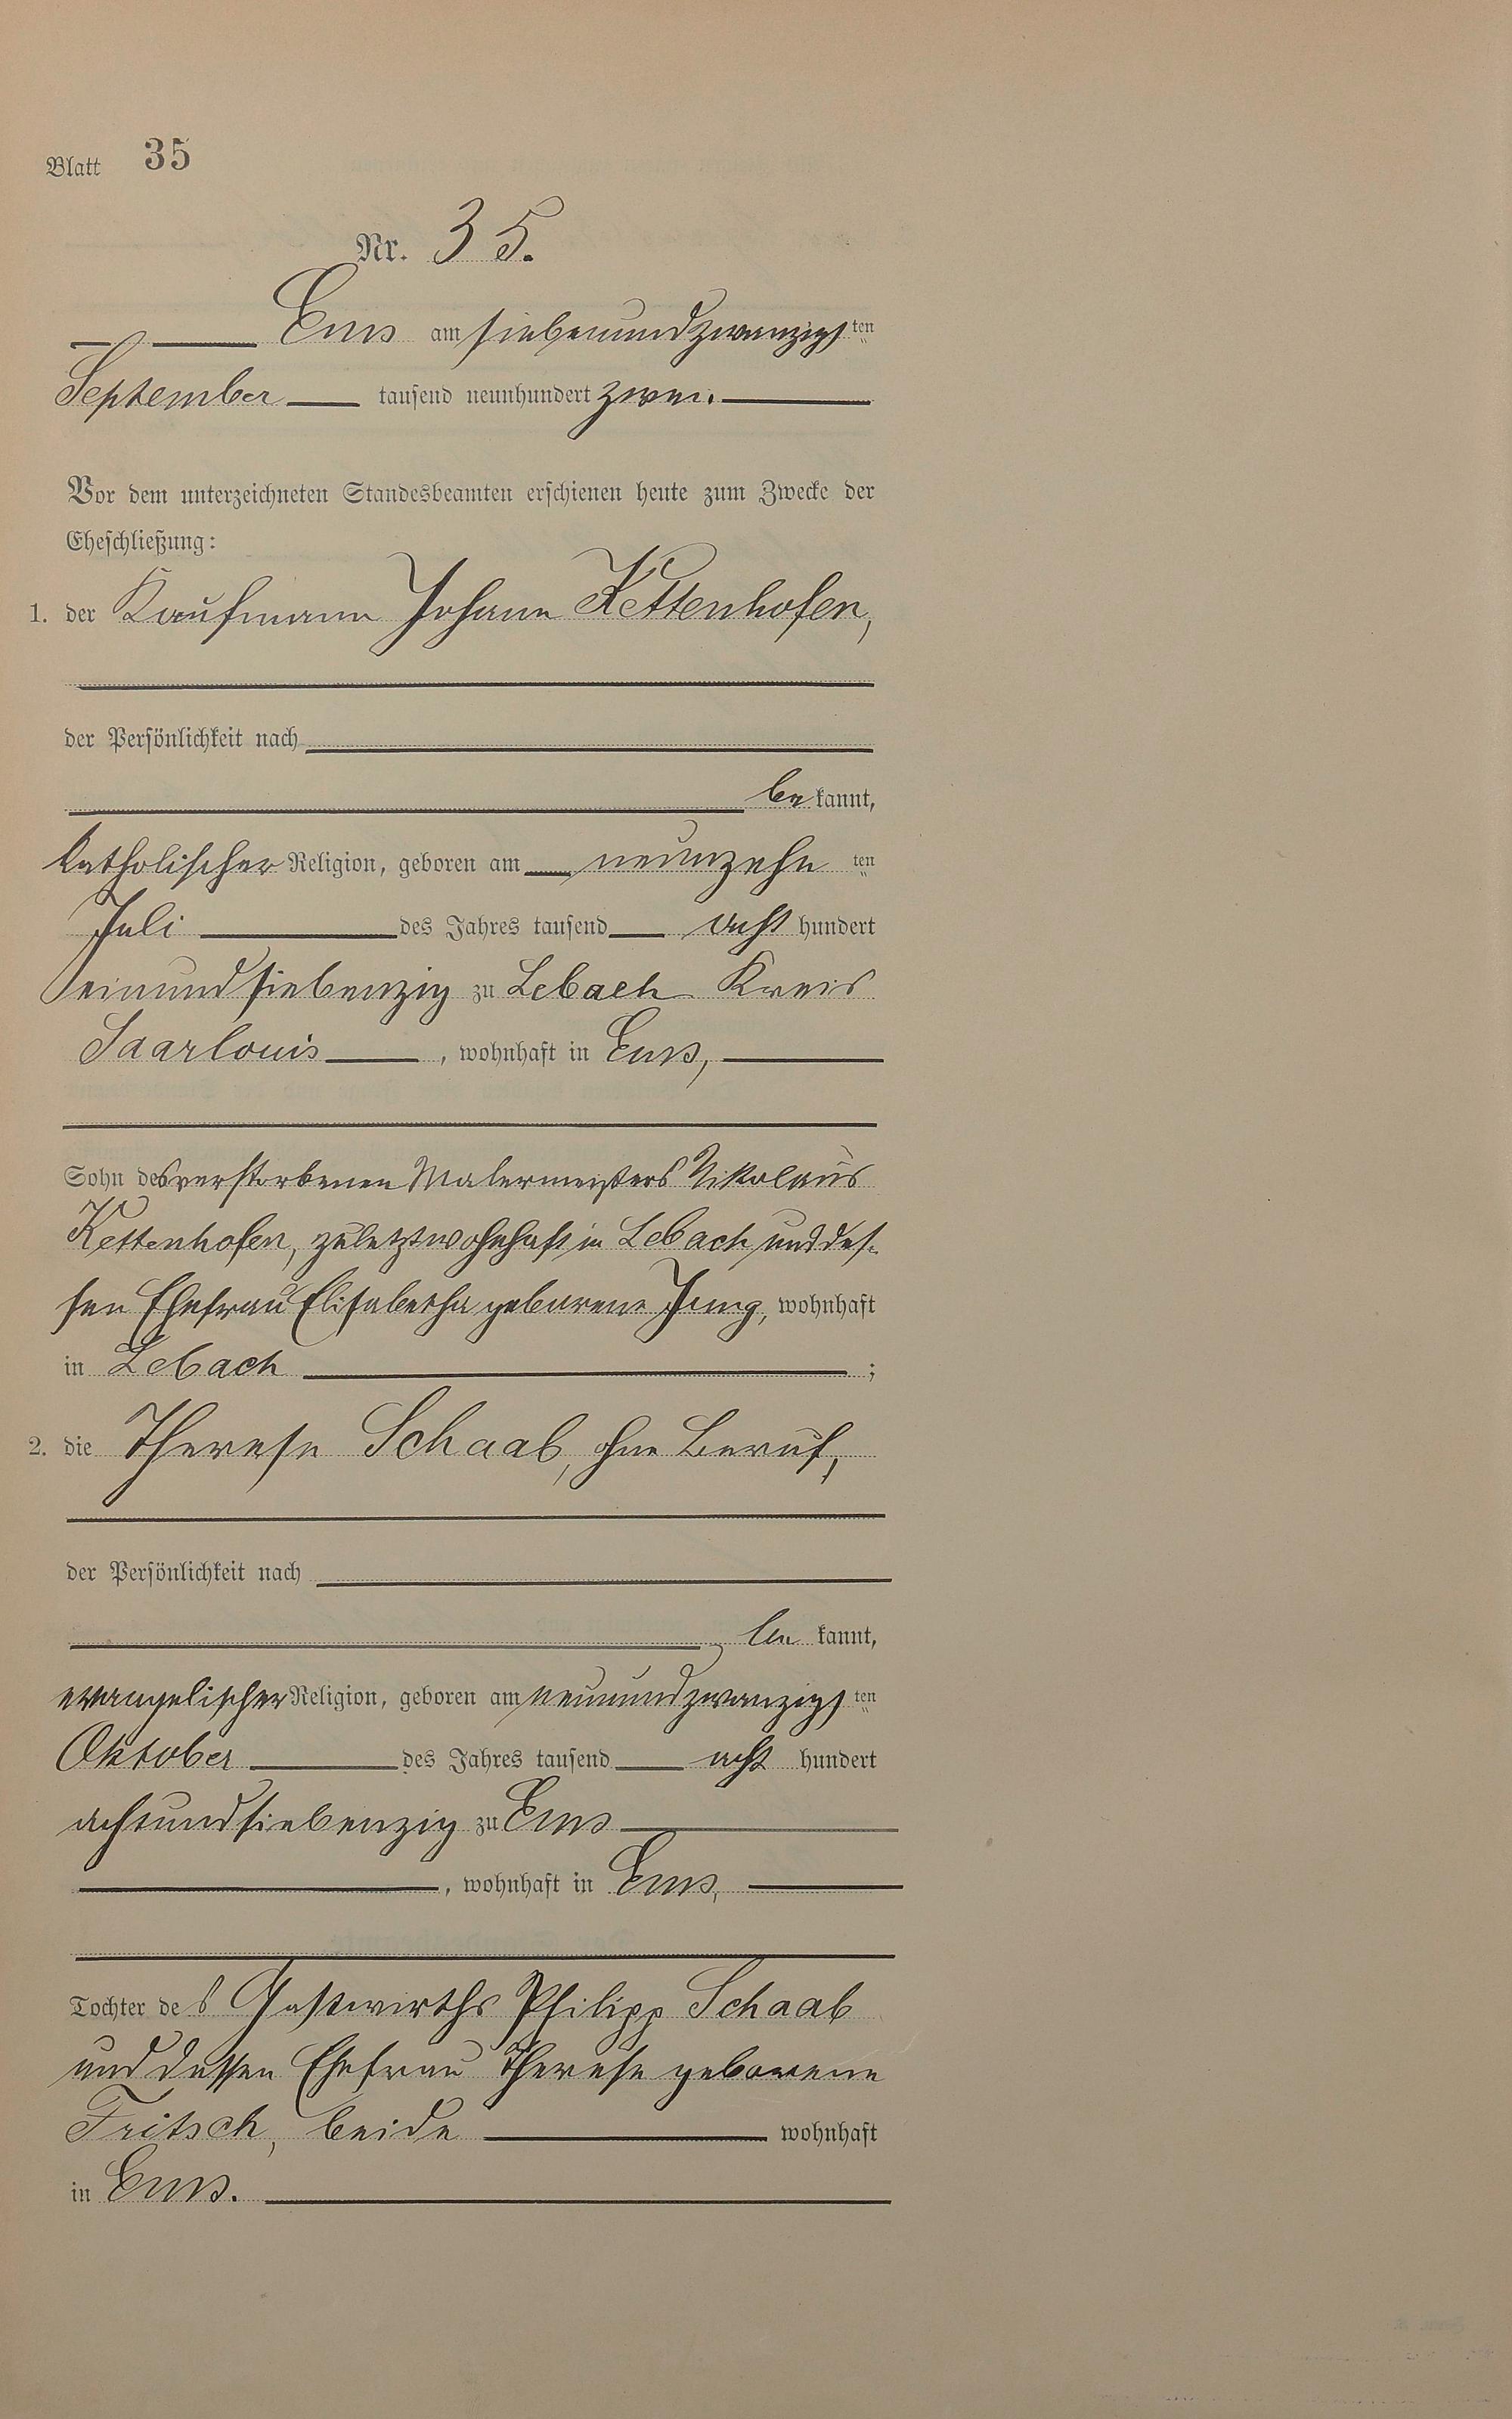 Blatt 35
Nr. 35.
Ems am siebenundzwanzigsten
September tausend neunhundert zwei.
Vor dem unterzeichneten Standesbeamten erschienen heute zum Zwecke der
Eheschließung:
1. der Kaufmann Johann Kettenhofen,
der Persönlichkeit nach
be kannt,
katholischer Religion, geboren am neunzehn ten
Juli des Jahres tausend acht hundert
einundsiebenzig zu Lebach Kreis
Saarlouis, wohnhaft in Ems,
Sohn des verstorbenen Malermeisters Nikolaus
Kettenhofen, zuletzt wohnhaft in Lebach und des-
sen Ehefrau Elisabetha geborene Jung, wohnhaft
in Lebach ;
2. die Therese Schaab, ohne Beruf,
der Persönlichkeit nach
be kannt,
evangelischer Religion, geboren am neunundzwanzigsten
Oktober des Jahres tausend acht hundert
achtundsiebenzig zu Ems
, wohnhaft in Ems,
Tochter des Gastwirths Philipp Schaab
und dessen Ehefrau Therese geborene
Fritsch, beide wohnhaft
in Ems.